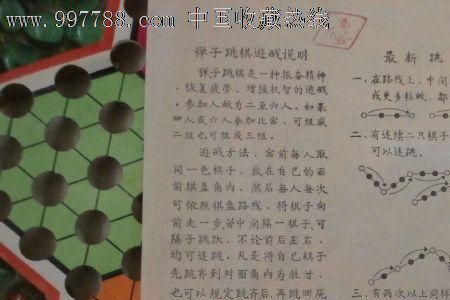 www.997788.com 中国收藏热线
弹子跳棋游戏说明
弹子跳棋是一种振奋精神
、恢复疲劳、增强机智的游戏
。参加人数为二至六人。如果
四人或六人参加比赛、可组成
二组也可组成三组。
游戏方法、赛前每人取
同一色棋子、放在自己的面
前棋盘角内、然后每人每次
可依照棋盘路线、将棋子向
前走一步,若中间隔一棋子,可
隔子跳跃、不论前后左右、
均可连跳、凡是将自己棋子
先跳齐到对面角内为胜者、
也可以规定跳齐后、再跳
最新跳
一、在路线上、中间
或更多粒数、都
二、有连续二只棋子
可以连跳。
三、有两次以上同样